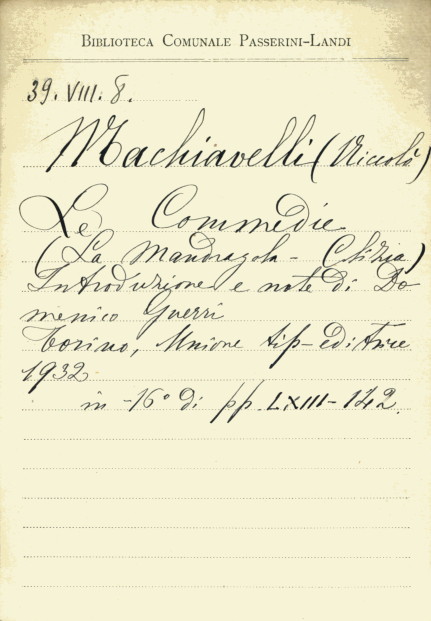 BIBLIOTECA COMUNALE PASSERINI-LANDI
39. VIII. 8.
Machiavelli (Niccolò)
Le Commedie
(La Mandragola - Clizia)
Introduzione e note di Do
menico Guerri
Torino, Unione tip-editrice
1932
in -16° di pp. LXIII-142.